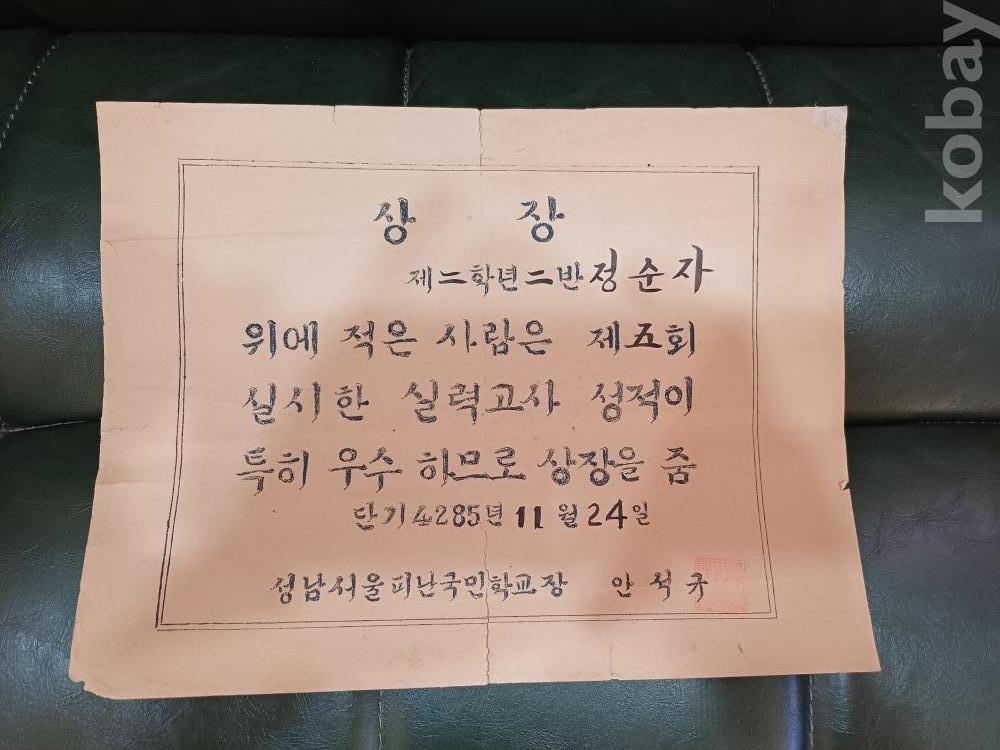 상 장
제二학년二반 정순자
위에 적은 사람은 제五회
실시한 실력고사 성적이
특히 우수 하므로 상장을 줌
단기4285년 11월 24일
성남서울피난국민학교장 안석규
kobay